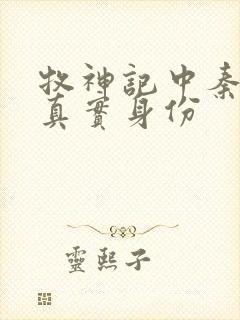 牧神記中秦
真實身份
靈熙子